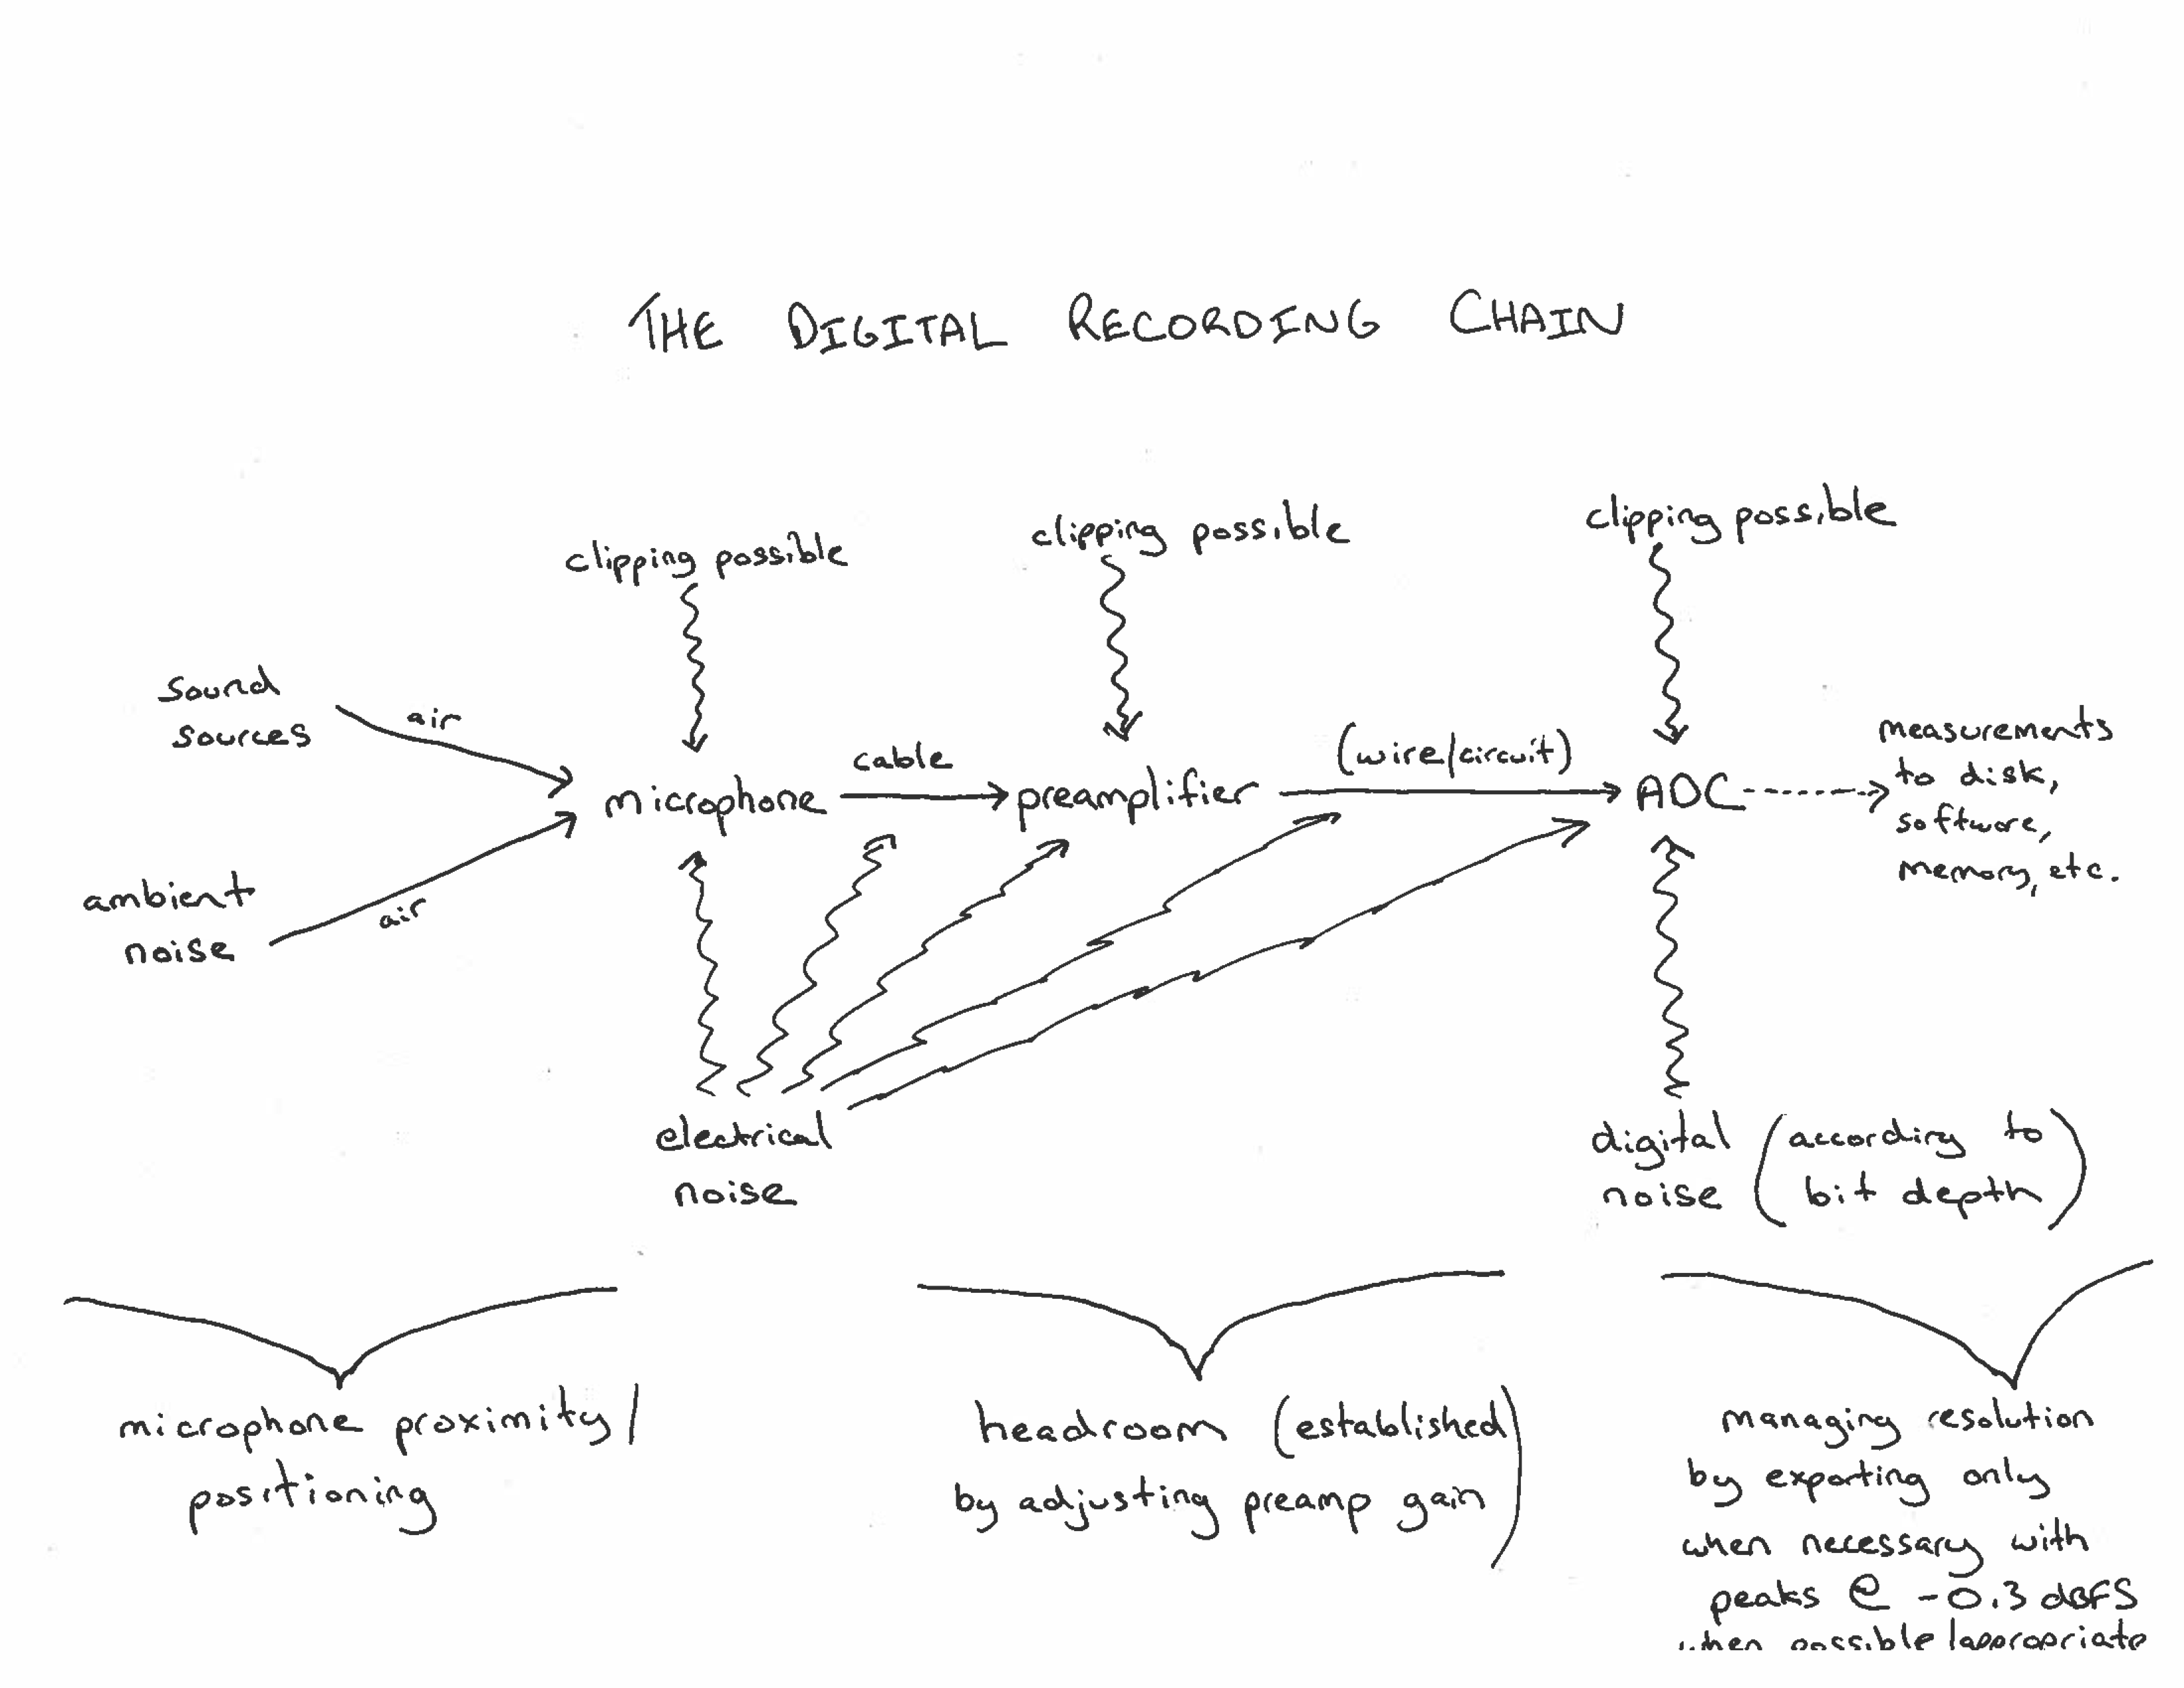 THE DIGITAL RECORDING CHAIN
clipping possible
clipping possible
clipping possible
sound
sources
air
ambient
noise
air
microphone
cable
preamplifier
(wire/circuit)
ADC
measurements
to disk,
software,
memory, etc.
electrical
noise
digital (according to
noise bit depth)
microphone proximity/
positioning
headroom (established
by adjusting preamp gain)
managing resolution
by exporting only
when necessary with
peaks @ -0.3 dBFS
when possible/appropriate